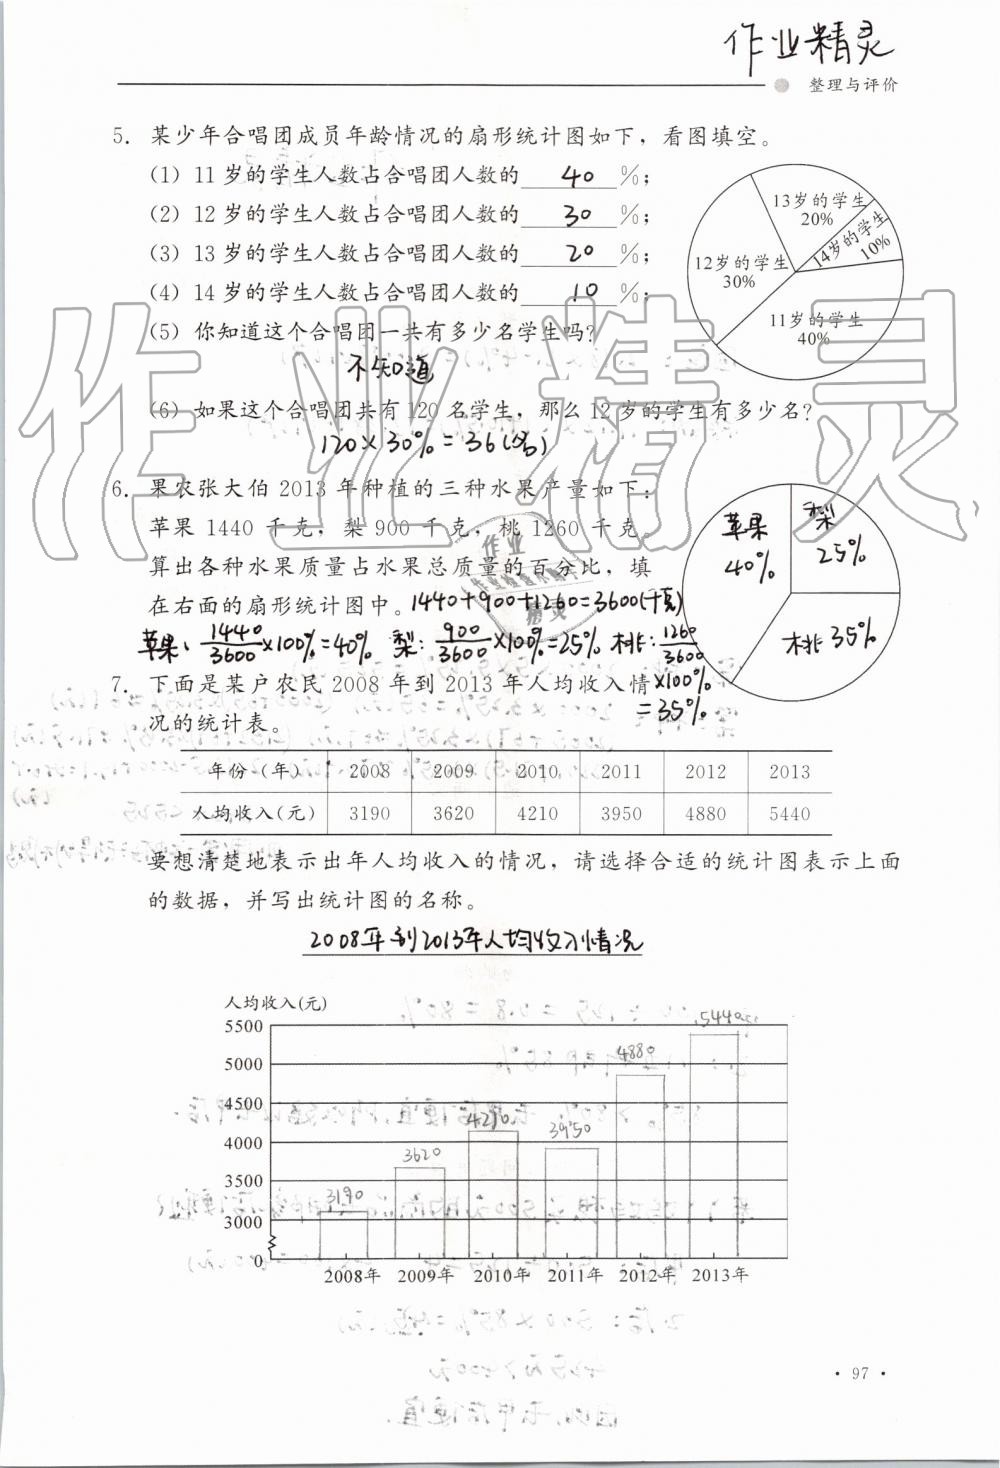 作业精灵
整理与评价
5. 某少年合唱团成员年龄情况的扇形统计图如下，看图填空。
(1) 11 岁的学生人数占合唱团人数的 40 %；
(2) 12 岁的学生人数占合唱团人数的 30 %；
(3) 13 岁的学生人数占合唱团人数的 20 %；
(4) 14 岁的学生人数占合唱团人数的 10 %；
(5) 你知道这个合唱团一共有多少名学生吗？
不知道
(6) 如果这个合唱团共有 120 名学生，那么 12 岁的学生有多少名？
120×30%=36(名)
13岁的学生
20%
14岁的学生
10%
12岁的学生
30%
11岁的学生
40%
作业精灵
6. 果农张大伯 2013 年种植的三种水果产量如下：
苹果 1440 千克，梨 900 千克，桃 1260 千克。
算出各种水果质量占水果总质量的百分比，填
在右面的扇形统计图中。1440+900+1260=3600(千克)
苹果：1440/3600×100%=40% 梨：900/3600×100%=25% 桃：1260/3600
×100%
=35%
苹果
40%
梨
25%
桃35%
作业
精灵
7. 下面是某户农民 2008 年到 2013 年人均收入情
况的统计表。
年份（年） 2008 2009 2010 2011 2012 2013
人均收入(元) 3190 3620 4210 3950 4880 5440
要想清楚地表示出年人均收入的情况，请选择合适的统计图表示上面
的数据，并写出统计图的名称。
2008年到2013年人均收入情况
人均收入(元)
5500
5440
5000
4880
4500
4210
4000
3950
3620
3500
3190
3000
0
2008年 2009年 2010年 2011年 2012年 2013年
· 97 ·